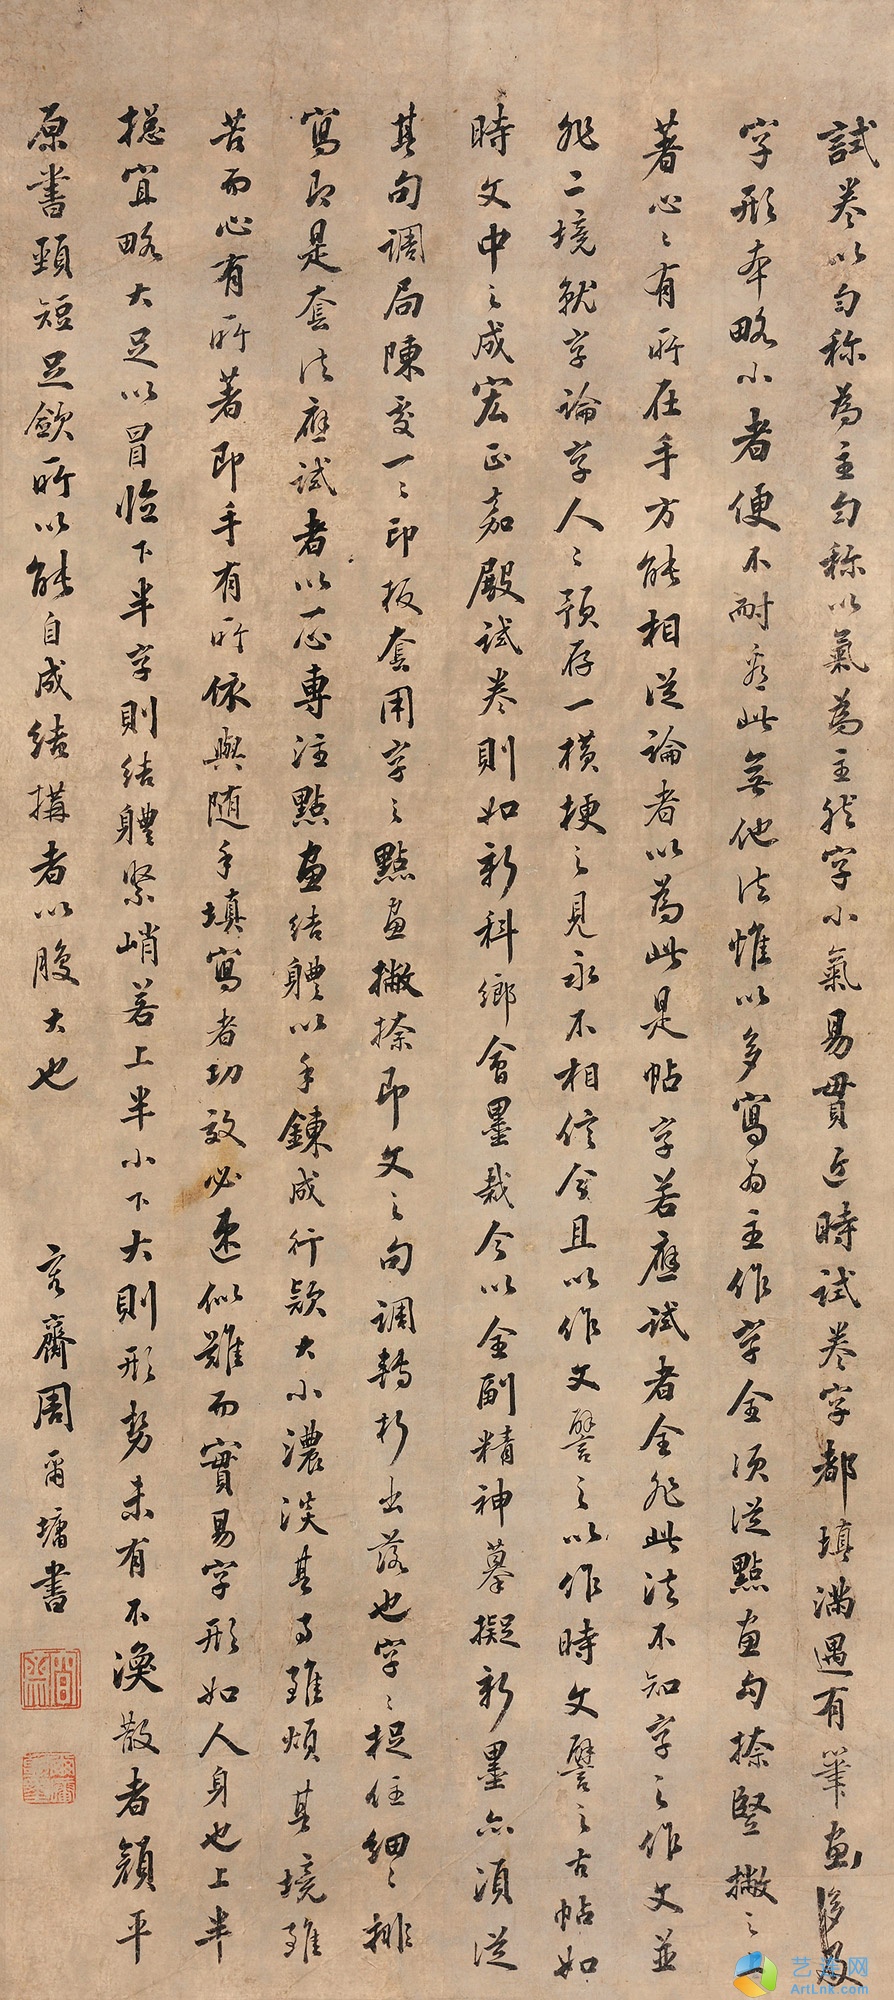 試卷以勻稱為主勻稱以氣為主然字小氣易貫近時試卷字都填滿遇有筆畫
字形本略小者便不耐看此無他法惟以多寫為主作字全須從點畫勾捺豎撇之
著心〻有所在手方能相從論者以為此是帖字若應試者全非此法不知字之作文並
非二境就字論字人〻預存一橫梗之見永不相信今且以作文譬之以作時文譬之古帖如
時文中之成宏正嘉殿試卷則如新科鄉會墨裁今以全副精神摹擬新墨亦須從
其句調局陳處一〻印板套用字之點畫撇捺即文之句調轉折出落也字〻捉住細〻排
寫即是套法應試者以一心專注點畫結體以手鍊成行款大小濃淡其事雖煩其境雖
苦而心有所著即手有所依與隨手填寫者功效必速似難而實易字形如人身也上半
揔宜略大足以冒恰下半字則結體緊峭若上半小下大則形勢未有不渙散者顏平
原書頸短足斂所以能自成結搆者以腹大也 容齋周爾墉書
艺连网
ArtLnk.com